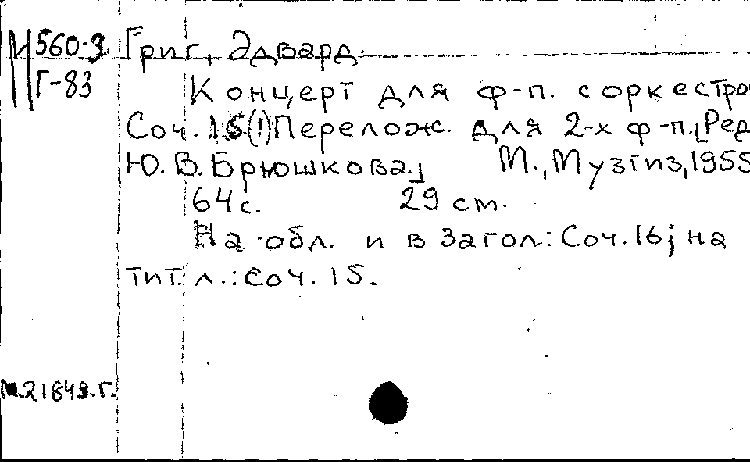 М 560-3 Григ, Эдвард
Г-83
Концерт для ф-п. с оркестро
Соч. 15(!) Перелож. для 2-х ф-п. [Ред.
Ю. В. Брюшкова.] М., Музгиз, 1955
64 с. 29 см.
На обл. и в загол.: Соч. 16; на
тит. л.: соч. 15.
М.21849.Г.